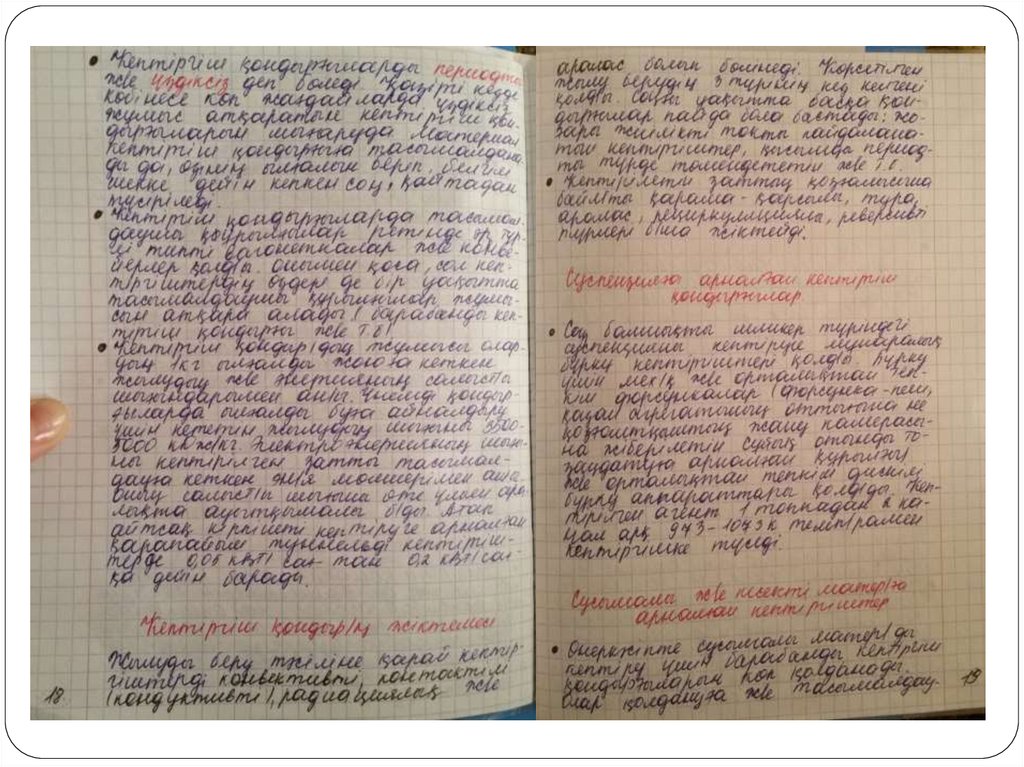 • Кептіргіш қондырғыларды периодты
және үздіксіз деп бөледі. Қазіргі кезде
көбінесе көп жағдайларда үздіксіз
жұмыс атқаратын кептіргіш қон-
дырғыларын шығаруда. Материал
кептіргіш қондырғыға тасымалдана-
ды да, өзінің ылғалын беріп, белгілі
шекке дейін кепкен соң, қайтадан
түсіріледі.
• Кептіргіш қондырғыларда тасымал-
даушы құрылғылар ретінде әр түр-
лі типті вагонеткалар және конве-
йерлер қолд-ы. Сонымен қоса, сол кеп-
тіргіштердің өздері де бір уақытта
тасымалдаушы құрылғылар жұмы-
сын атқара алады. (барабанды кеп-
тіргіш қондырғы және т.б)
• Кептіргіш қондыр/дың жұмысы олар-
дың 1 кг ылғалды жоюға кеткен
жылудың және энергияның салыстыр
шығындарымен анық. Үнемді қондыр-
ғыларда ылғалды буға айналдыру
үшін кететін жылудың шығыны 3500-
5000 кДж/кг. Электроэнергияның шығы-
ны кептірілген затты тасымал-
дауға кеткен энергия мөлшерімен
салыстыр шығыны өте үлкен ара-
лықта ауытқымалы б/ды. Атап
айтсақ кірпішті кептіруге арналған
қарапайым туннельді кептіргіш-
терде 0,05 кВт/сағ-тан 0,2 кВт/сағ-
қа дейін барады.
Кептіргіш қондыр/ң жіктемесі
Жылуды беру тәсіліне қарай кептір-
гіштерді конвективті, контактілі
(кондуктивті), радиациялық және
18
аралас болып бөлінеді. Көрсетілген
жылу берудің 3 түрінің кез келгені
қолд-ы. Соңғы уақытта басқа қон-
дырғылар пайда бола бастады: жо-
ғары жиілікті токты пайдалана-
тын кептіргіштер, қысымды период-
ты түрде төмендететін және т.б.
• Кептірілетін заттың қозғалысына
байл-ты қарама-қарсылы, тура,
аралас, рециркуляциялы, реверсивті
түрлері б-ша жіктейді.
Суспензияға арналған кептіргіш
қондырғылар
• Саз балшықты шликер түріндегі
суспензияны кептіруге мұнаралық
бүрку кептіргіштері қолд-ы. Бүрку
үшін мех/қ және орталықтан теп-
кіш форсункалар (форсунка-пеш,
қазан агрегатының оттығына не
қозғалтқыштың жану камерасы-
на жіберілетін сұйық отынды то-
заңдатуға арналған құрылғы)
және орталықтан тепкіш дискілі
бүрку аппараттары қолд-ды. Кеп-
тіргіш агент 1 топкадан 2 ка-
нал арқ 973-1073К темп/рамен
кептіргішке түседі.
Сусымалы және кесекті матер/ға
арналған кептіргіштер
• Өнеркәсіпте сусымалы матер/ды
кептіру үшін барабанды кептіргіш
қондырғыларын көп қолданады.
Олар қолдануға және тасымалдау-
19